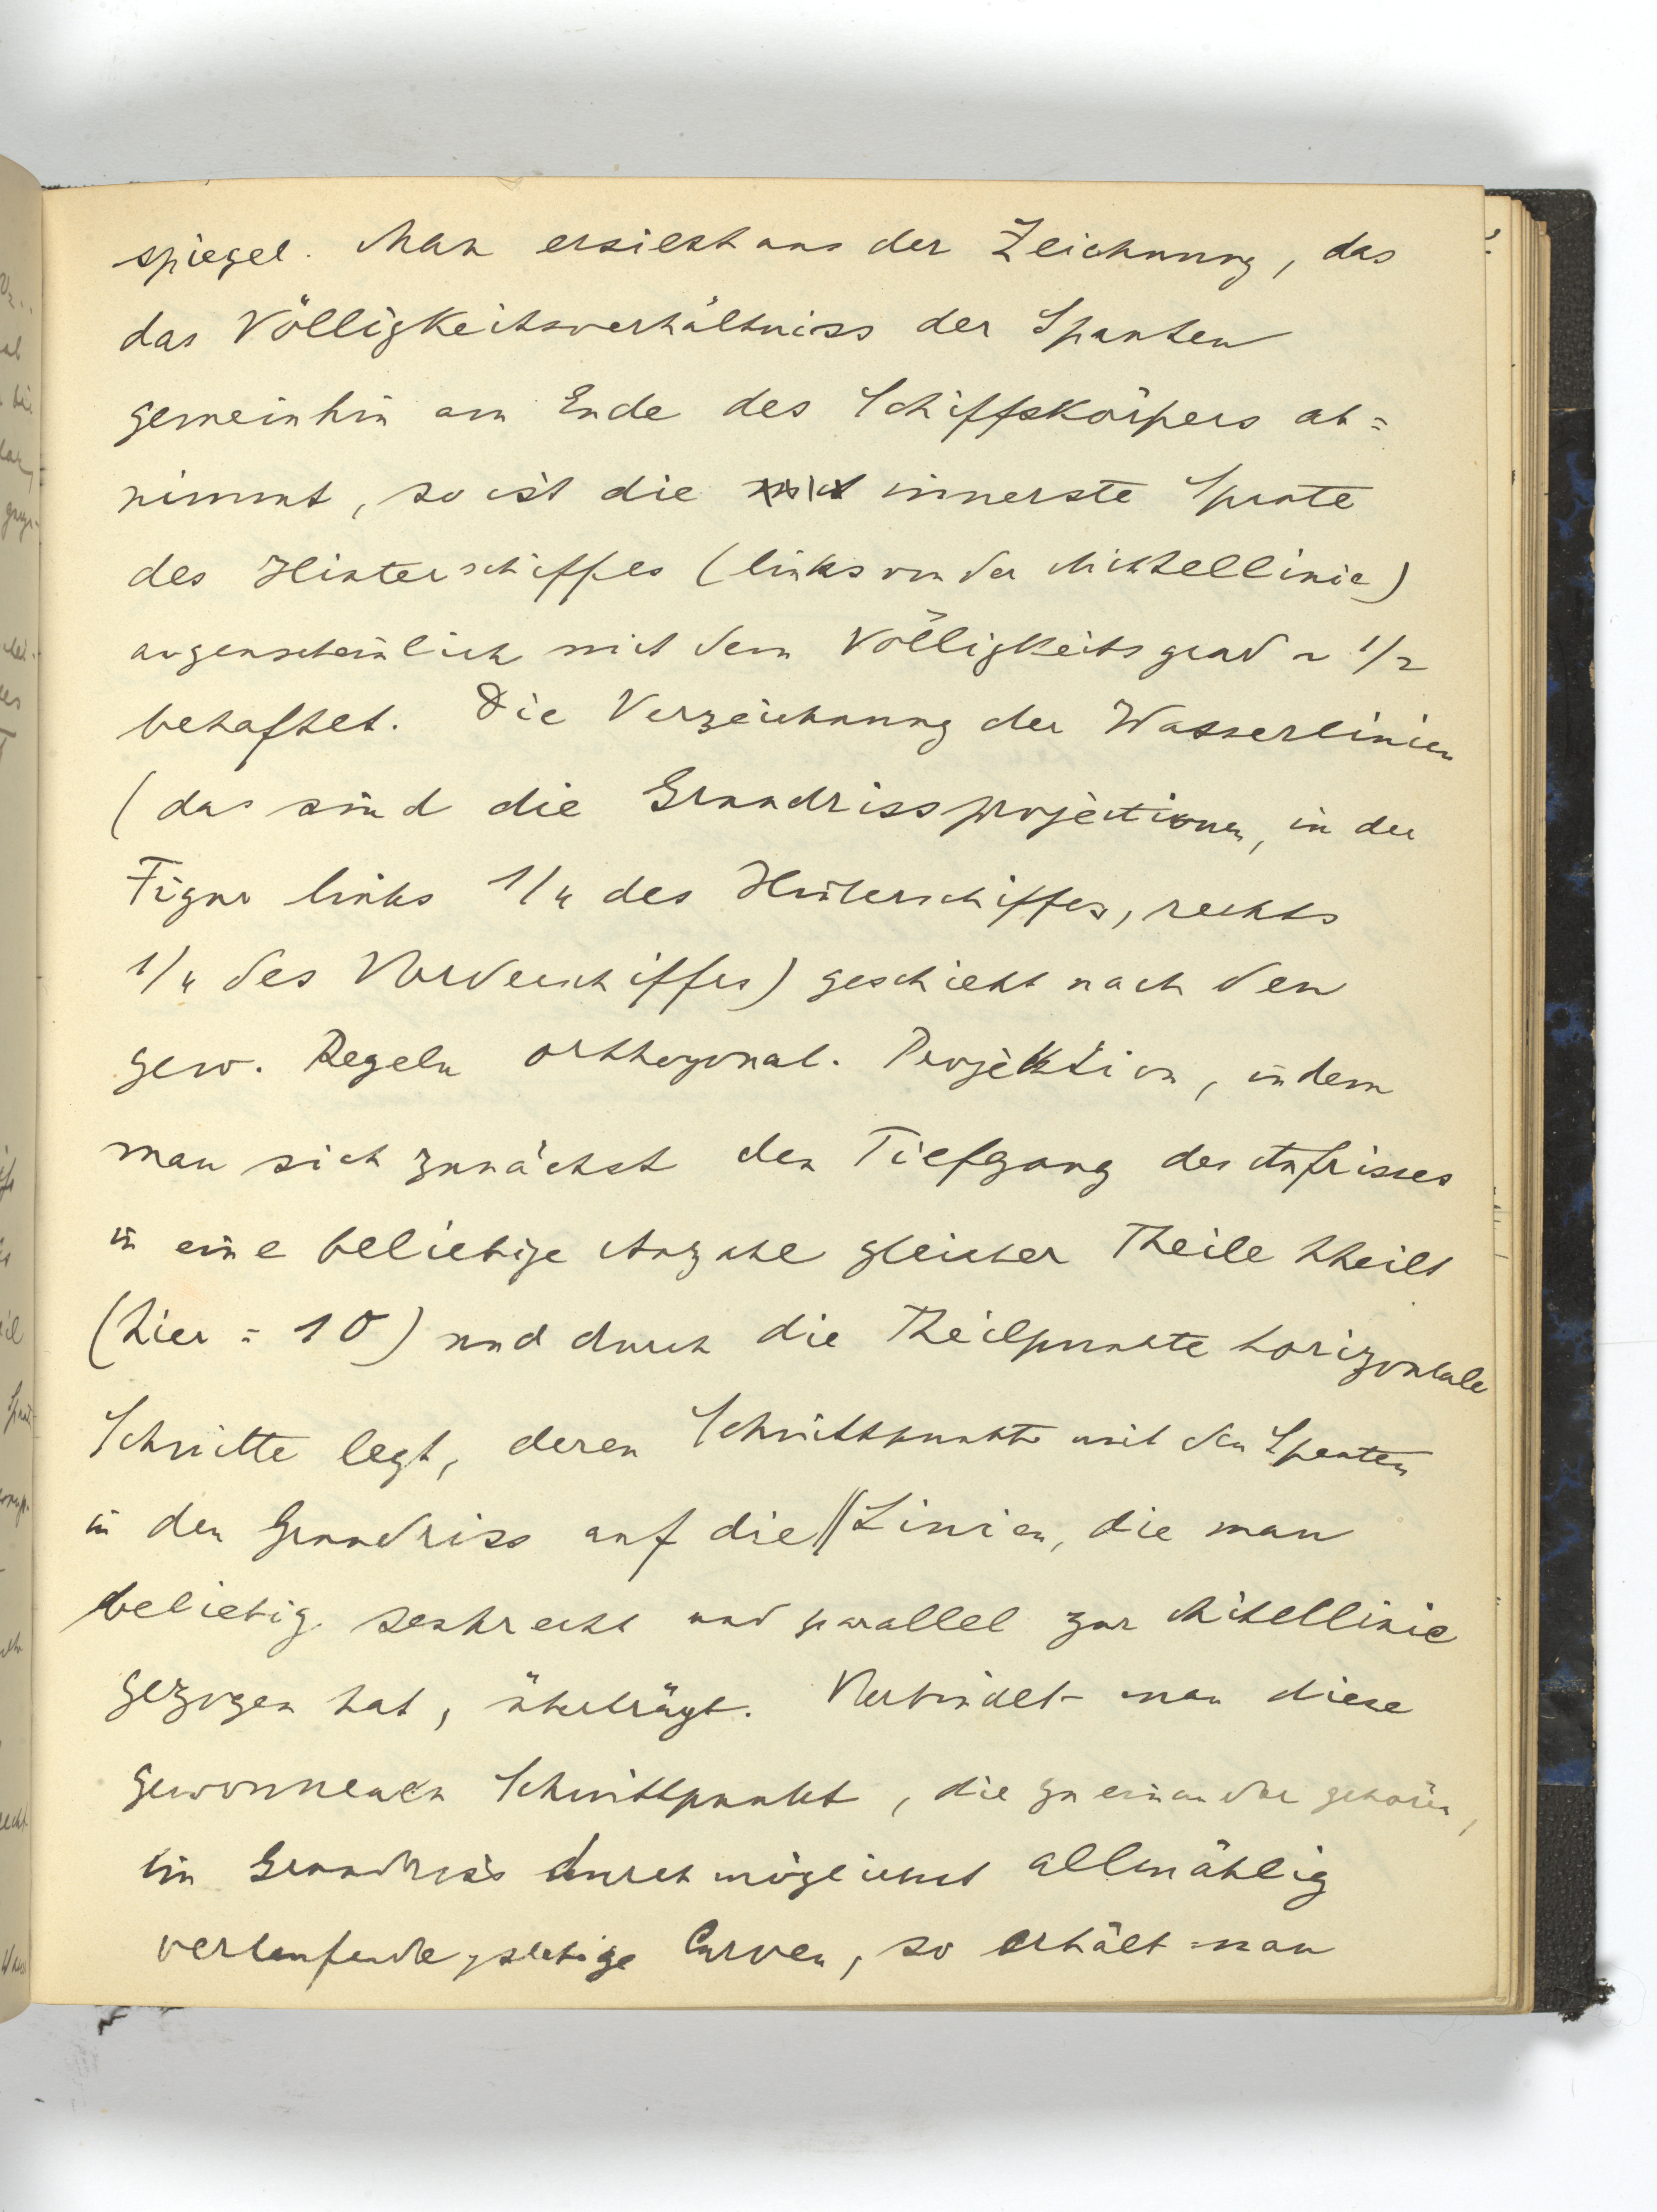 spiegel. Man ersieht aus der Zeichnung, das
das Völligkeitsverhältniss der Spanten
gemeinhin am Ende des Schiffskörpers ab=
nimmt, so ist die innerste Spante
des Hinterschiffes (links von der Mittellinie)
augenscheinlich mit dem Völligkeitsgrad ~ 1/2
behaftet. Die Verzeichnung der Wasserlinien
(das sind die Grundrissprojectionen, in der
Figur links 1/4 des Hinterschiffes, rechts
1/4 des Vorderschiffes) geschieht nach den
gew. Regeln orthogonal. Projektion, indem
man sich zunächst den Tiefgang des Aufrisses
in eine beliebige Anzahl gleicher Theile theilt
(hier = 10) und durch die Theilpunkte horizontale
Schnitte legt, deren Schnittpunkte mit den Spanten
in den Grundriss auf die || Linien, die man
beliebig senkrecht und parallel zur Mittellinie
gezogen hat, überträgt. Verbindet man diese
gewonnenen Schnittpunkt, die zu einander gehören,
im Grundriss durch möglichst allmählig
verlaufende, stetige Curven, so erhält man